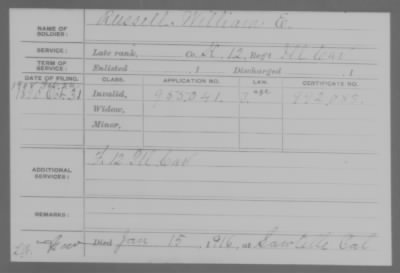 NAME OF SOLDIER: Russell, William E.
SERVICE: Late rank, Co. K, 12 Reg't Ill Cav
TERM OF SERVICE: Enlisted , 1 Discharged , 1
DATE OF FILING. CLASS. APPLICATION NO. LAW. CERTIFICATE NO.
1890 Oct. 31 Invalid, 955,041
Widow,
Minor,
ADDITIONAL SERVICES: F, 12 Ill Cav
REMARKS:
Died Jan 15, 1916, at Sawtelle Cal